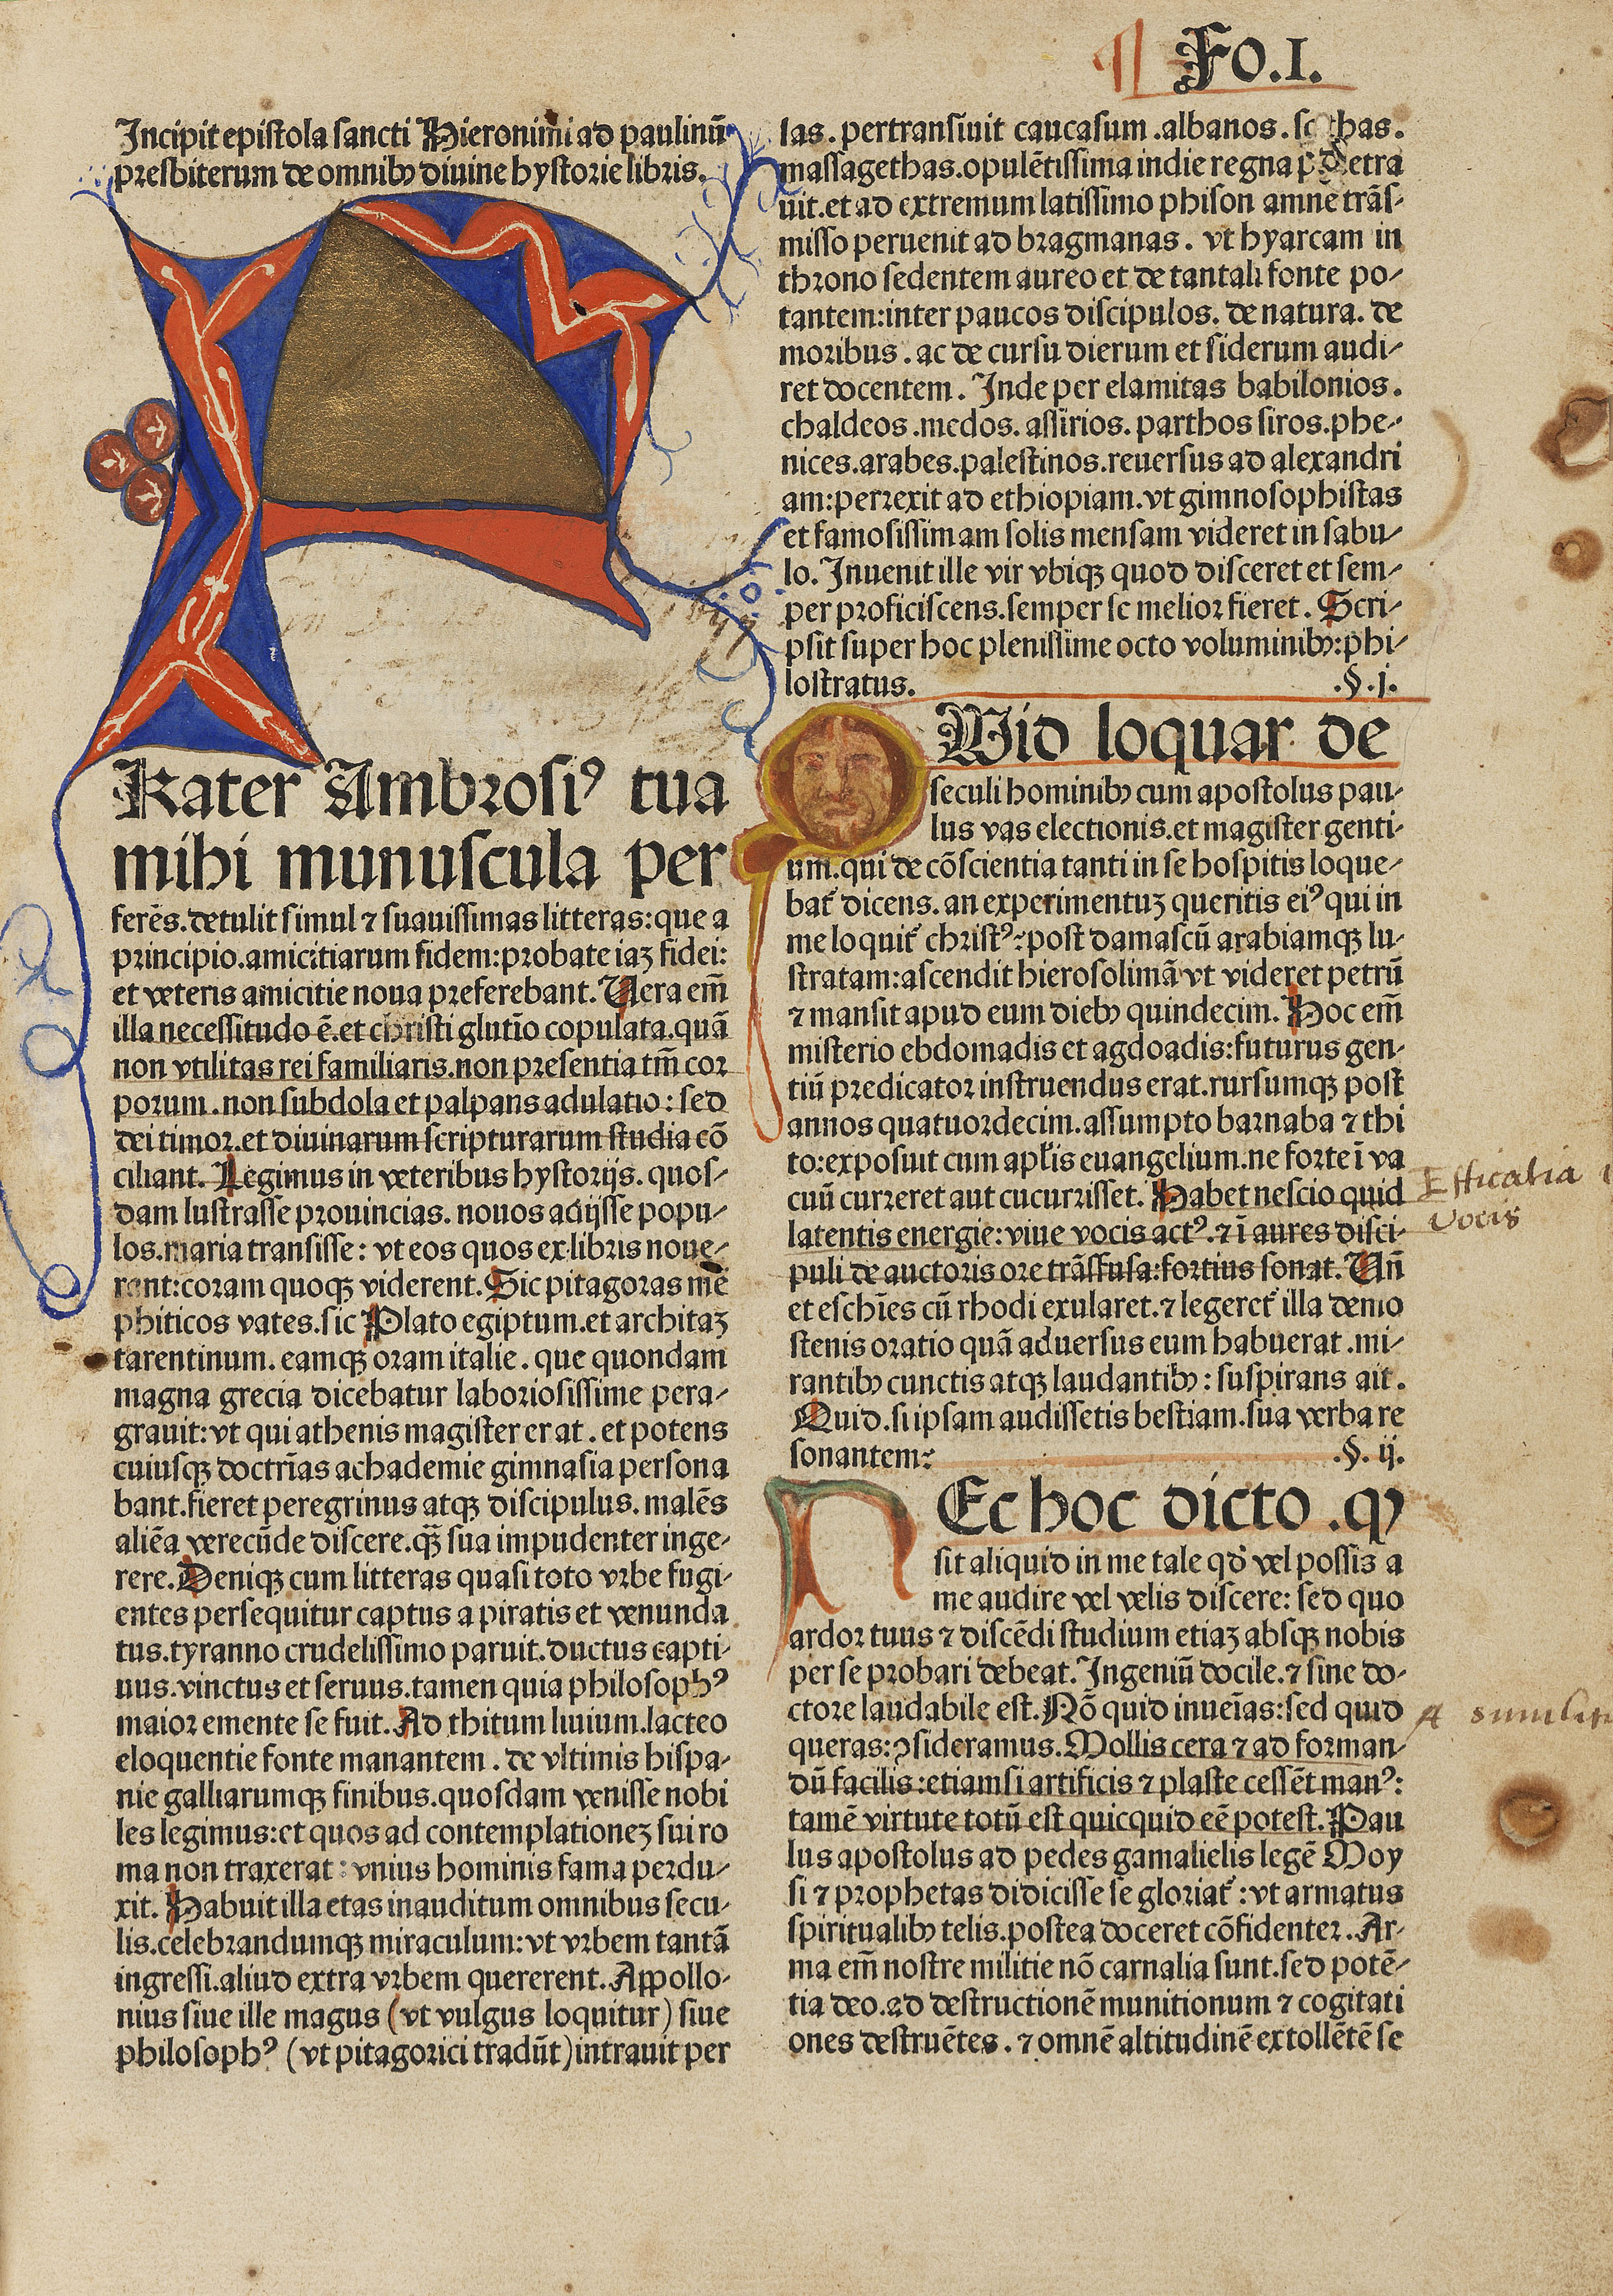 FO.I.
Incipit epistola sancti Hieronimi ad paulinū
presbiterum de omnibꝫ diuine hystorie libris.
Rater Ambrosiꝰ tua
mihi munuscula per
ferēs. detulit simul ⁊ suauissimas litteras: que a
principio. amicitiarum fidem: probate iaꝫ fidei:
et veteris amicitie noua preferebant. Uera em̄
illa necessitudo ē. et christi glutīo copulata. quā
non vtilitas rei familiaris. non presentia tm̄ cor
porum. non subdola et palpans adulatio: sed
dei timor. et diuinarum scripturarum studia cō
ciliant. Legimus in veteribus hystorijs. quos-
dam lustrasse prouincias. nouos adijsse popu-
los. maria transisse: vt eos quos ex libris noue-
rant: coram quoqꝫ viderent. Sic pitagoras mē
phiticos vates. sic Plato egiptum. et architaꝫ
tarentinum. eamqꝫ oram italie. que quondam
magna grecia dicebatur laboriosissime pera-
grauit: vt qui athenis magister erat. et potens
cuiusqꝫ doctrīas achademie gimnasia persona
bant. fieret peregrinus atqꝫ discipulus. malēs
aliēa verecūde discere. qꝫ̄ sua impudenter inge-
rere. Deniqꝫ cum litteras quasi toto vrbe fugi-
entes persequitur captus a piratis et venunda
tus. tyranno crudelissimo paruit. ductus capti-
uus. vinctus et seruus. tamen quia philosophꝰ
maior emente se fuit. Ad thitum liuium. lacteo
eloquentie fonte manantem. de vltimis hispa-
nie galliarumqꝫ finibus. quosdam venisse nobi
les legimus: et quos ad contemplationeꝫ sui ro
ma non traxerat: vnius hominis fama perdu-
xit. Habuit illa etas inauditum omnibus secu-
lis. celebrandumqꝫ miraculum: vt vrbem tantā
ingressi. aliud extra vrbem quererent. Appollo-
nius siue ille magus (vt vulgus loquitur) siue
philosophꝰ (vt pitagorici tradūt) intrauit per
las. pertransiuit caucasum. albanos. scithas.
massagethas. opulētissima indie regna penetra
uit. et ad extremum latissimo phison amne trās-
misso peruenit ad bragmanas. vt hyarcam in
throno sedentem aureo et de tantali fonte po-
tantem: inter paucos discipulos. de natura. de
moribus. ac de cursu dierum et siderum audi-
ret docentem. Inde per elamitas babilonios.
chaldeos. medos. assirios. parthos siros. phe-
nices. arabes. palestinos. reuersus ad alexandri
am: perrexit ad ethiopiam. vt gimnosophistas
et famosissimam solis mensam videret in sabu-
lo. Inuenit ille vir vbiqꝫ quod disceret et sem-
per proficiscens. semper se melior fieret. Scri-
psit super hoc plenissime octo voluminibꝫ: phi-
lostratus. .§.j.
QWid loquar de
seculi hominibꝫ cum apostolus pau-
lus vas electionis. et magister genti-
um. qui de cōscientia tanti in se hospitis loque-
bat᷑ dicens. an experimentuꝫ queritis eiꝰ qui in
me loquit᷑ christꝰ? post damascū arabiamqꝫ lu-
stratam: ascendit hierosolimā vt videret petrū
⁊ mansit apud eum diebꝫ quindecim. Hoc em̄
misterio ebdomadis et agdoadis: futurus gen-
tiū predicator instruendus erat. rursumqꝫ post
annos quatuordecim. assumpto barnaba ⁊ thi
to: exposuit cum apl̄is euangelium. ne forte ī va
cuū curreret aut cucurrisset. Habet nescio quid
latentis energie: viue vocis actꝰ. ⁊ ī aures disci-
puli de auctoris ore trāsfusa: fortius sonat. Un̄
et eschīes cū rhodi exularet. ⁊ legeret᷑ illa demo
stenis oratio quā aduersus eum habuerat. mi-
rantibꝫ cunctis atqꝫ laudantibꝫ: suspirans ait.
Quid. si ipsam audissetis bestiam. sua verba re
sonantem? .§. ij.
NEc hoc dicto. qꝙ
sit aliquid in me tale qd̓ vel possis a
me audire vel velis discere: sed quo
ardor tuus ⁊ discēdi studium etiaꝫ absqꝫ nobis
per se probari debeat. Ingeniū docile. ⁊ sine do-
ctore laudabile est. Nō quid inueīas: sed quid
queras: ꝯsideramus. Mollis cera ⁊ ad forman-
dū facilis: etiam si artificis ⁊ plaste cessēt manꝰ:
tamē virtute totū est quicquid eē potest. Pau
lus apostolus ad pedes gamalielis legē Moy
si ⁊ prophetas didicisse se gloriat᷑: vt armatus
spiritualibꝫ telis. postea doceret cōfidenter. Ar-
ma em̄ nostre militie nō carnalia sunt. sed potē-
tia deo. ad destructionē munitionum ⁊ cogitati
ones destruētes. ⁊ omnē altitudinē extollētē se
Efficatia
vocis